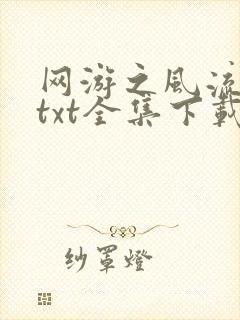 网游之风流
txt全集下载
纱罩燈